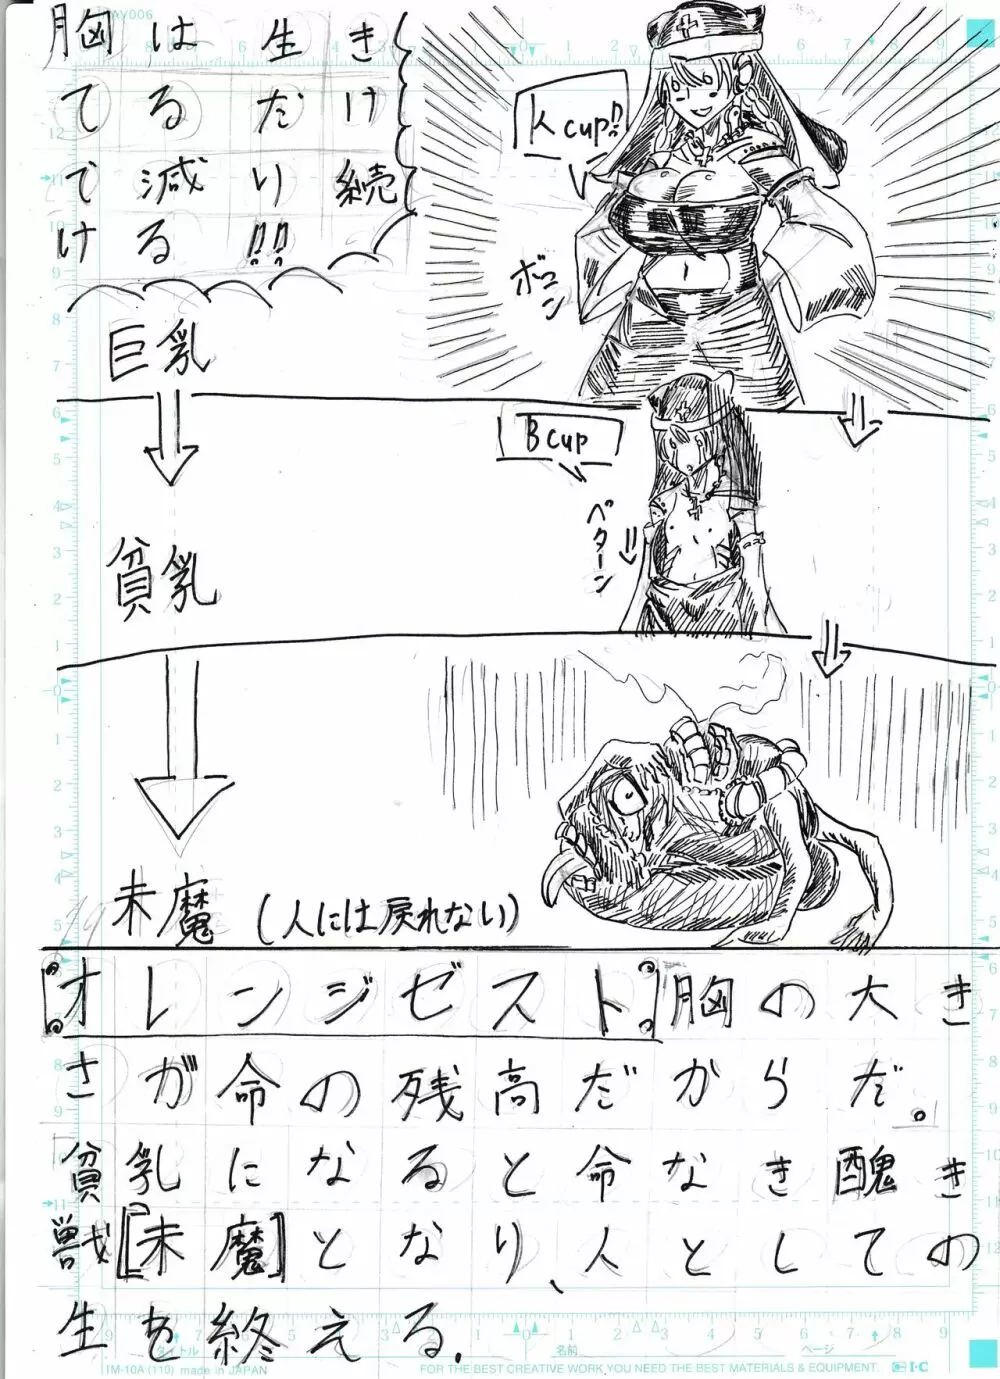 AV006
胸は生き
てるだけ
で減り続
ける!!
K cup!!
ボン
巨乳
B cup
ペターン
貧乳
未魔 (人には戻れない)
オレンジゼスト 胸の大き
さが命の残高だからだ。
貧乳になると命なき醜き
獣[未魔]となり、人としての
生を終える.
タイトル
名前
ページ
IM-10A (110) made in JAPAN
FOR THE BEST CREATIVE WORK, YOU NEED THE BEST MATERIALS & EQUIPMENT.
I·C